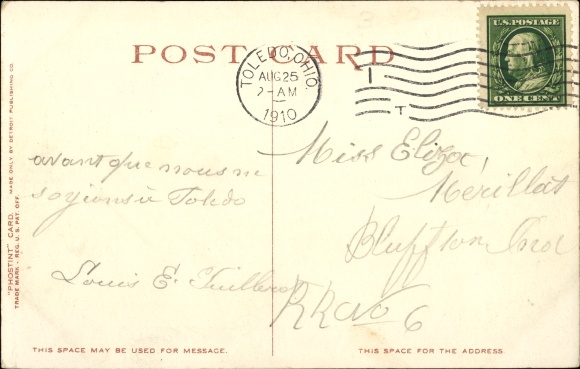 POST CARD
TOLEDO, OHIO.
AUG 25
2-AM
1910
I
T
U.S. POSTAGE
ONE CENT
avant que nous ne
soyions à Toledo
Louis E.
Miss Eliza
Merillat
Bluffton Ind
RR No 6
"PHOSTINT" CARD. MADE ONLY BY DETROIT PUBLISHING CO.
TRADE MARK - REG. U.S. PAT. OFF.
THIS SPACE MAY BE USED FOR MESSAGE.
THIS SPACE FOR THE ADDRESS.